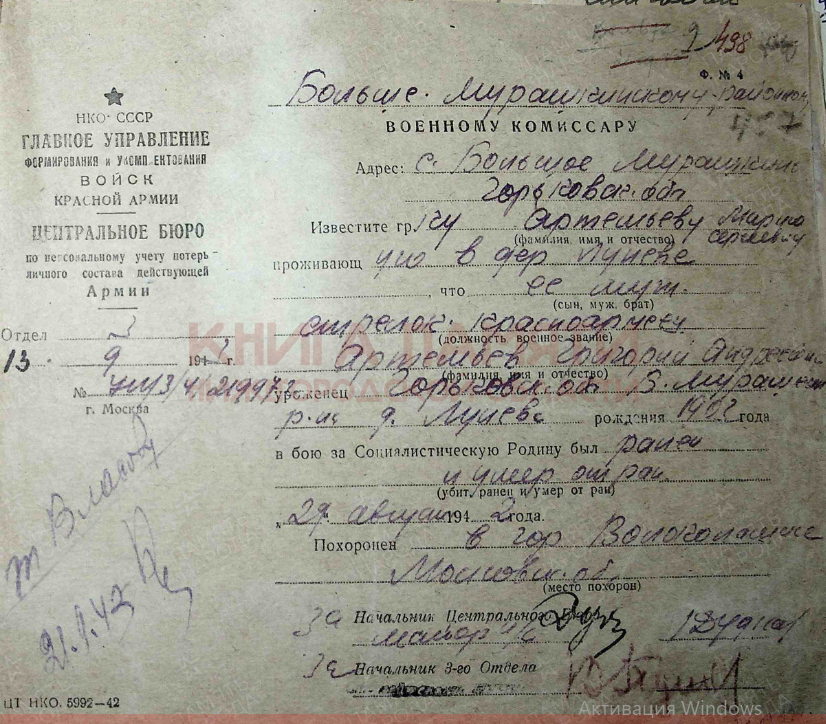 9 498
Ф. № 4
Больше-Мурашкинскому районному
ВОЕННОМУ КОМИССАРУ
НКО СССР
ГЛАВНОЕ УПРАВЛЕНИЕ
ФОРМИРОВАНИЯ и УКОМПЛЕКТОВАНИЯ
ВОЙСК
КРАСНОЙ АРМИИ
ЦЕНТРАЛЬНОЕ БЮРО
по персональному учету потерь
личного состава действующей
Армии
Отдел 3
13 9 194 г.
№
г. Москва
Адрес: с. Большое Мурашкино
Горьковск. обл
Известите гр. ку Артемьеву Марию
Сергеевну
(фамилия, имя и отчество)
проживающ ую в дер Луневе
, что ее муж.
(сын, муж, брат)
стрелок красноармеец
(должность военное звание)
Артемьев Григорий Андреевич
(фамилия, имя и отчество)
уроженец Горьковск. об Б. Мурашкин
р-на д. Лунево рождения 1902 года
в бою за Социалистическую Родину был ранен
и умер от ран
(убит, ранен и умер от ран)
„ 29 „ август 194 2 года.
Похоронен в гор Волоколамске
Московск. об.
(место похорон)
За Начальник Центрального Бюро
майор
За Начальник 3-го Отдела
т Власову
ЦТ НКО. 5992—42
КНИГА ПАМЯТИ
Активация Windows